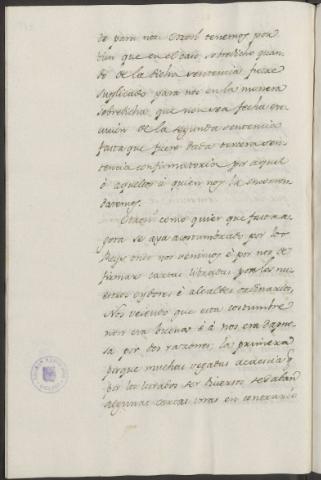 do para nos. Otrosi tenemos por
bien que en el caso sobredicho quan-
do de la dicha sentencia fuere
suplicado para nos en la manera
sobredicha, que non sea fecha exe-
cucion de la segunda sentencia
fasta que fuere dada tercera sen-
tencia confirmatoria por aquel
ó aquellos á quien nos la encomen-
daremos.
Otrosi como quier que fasta a-
gora se aya acostumbrado por los
Reys onde nos venimos é por nos de
firmar cartas libradas por los nu-
estros oydores é alcaldes ordinarios,
Nos veyendo que esta costumbre
non era buena é á nos era dapno-
sa por dos razones, la primera
porque muchas vegadas acaescia q
por los letrados ser diversos se daban
algunas cartas unas en contrario